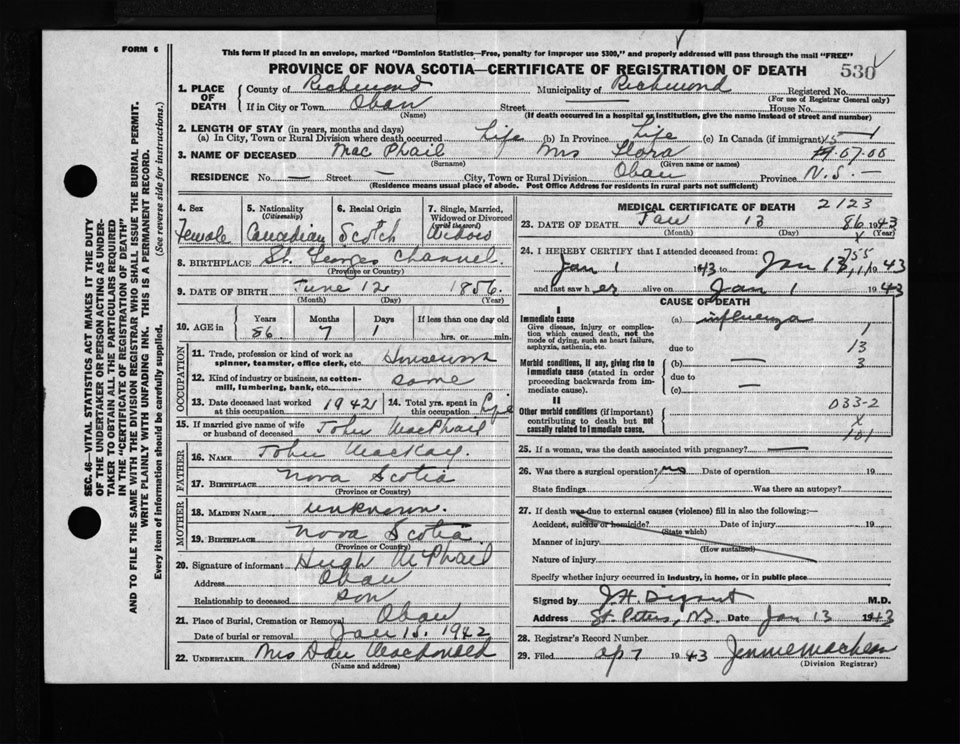 FORM 6
This form if placed in an envelope, marked "Dominion Statistics—Free, penalty for improper use $300," and properly addressed will pass through the mail "FREE"
PROVINCE OF NOVA SCOTIA—CERTIFICATE OF REGISTRATION OF DEATH 530
1. PLACE OF DEATH County of Richmond Municipality of Richmond Registered No.
(For use of Registrar General only)
If in City or Town Oban Street House No.
(Name) (If death occurred in a hospital or institution, give the name instead of street and number)
2. LENGTH OF STAY (in years, months and days)
(a) In City, Town or Rural Division where death occurred Life (b) In Province Life (c) In Canada (if immigrant) 15
3. NAME OF DECEASED Mac Phail Mrs Flora 07.00
(Surname) (Given name or names)
RESIDENCE No. — Street — City, Town or Rural Division Oban Province N.S. —
(Residence means usual place of abode. Post Office Address for residents in rural parts not sufficient)
4. Sex 5. Nationality (Citizenship) 6. Racial Origin 7. Single, Married, Widowed or Divorced (write the word)
Female Canadian Scotch Widow
8. BIRTHPLACE St. Georges Channel.
(Province or Country)
9. DATE OF BIRTH June 12 1856
(Month) (Day) (Year)
10. AGE in Years Months Days If less than one day old
86. 7 1 hrs. or min.
OCCUPATION
11. Trade, profession or kind of work as spinner, teamster, office clerk, etc. Housework
12. Kind of industry or business, as cotton-mill, lumbering, bank, etc. same
13. Date deceased last worked at this occupation 1942 14. Total yrs. spent in this occupation Life
15. If married give name of wife or husband of deceased John MacPhail
FATHER
16. NAME John MacKay.
17. BIRTHPLACE Nova Scotia
(Province or Country)
MOTHER
18. MAIDEN NAME unknown.
19. BIRTHPLACE Nova Scotia
(Province or Country)
20. Signature of informant Hugh McPhail
Address Oban
Relationship to deceased son
21. Place of Burial, Cremation or Removal Oban
Date of burial or removal Jan 15. 1942
22. UNDERTAKER Mrs Dan Macdonald
(Name and address)
MEDICAL CERTIFICATE OF DEATH 2123
23. DATE OF DEATH Jan 13 86 1943
(Month) (Day) (Year)
24. I HEREBY CERTIFY that I attended deceased from: 755
Jan 1 1943 to Jan 13 1943
and last saw her alive on Jan 1 1943
CAUSE OF DEATH
I
Immediate cause (a) influenza 1
Give disease, injury or complication which caused death, not the mode of dying, such as heart failure, asphyxia, asthenia, etc. due to 13
Morbid conditions, if any, giving rise to immediate cause (stated in order proceeding backwards from immediate cause). (b) — 3
due to
(c) —
II
Other morbid conditions (if important) contributing to death but not causally related to immediate cause. 033-2
X
101
25. If a woman, was the death associated with pregnancy? —
26. Was there a surgical operation? no Date of operation 19
State findings Was there an autopsy?
27. If death was due to external causes (violence) fill in also the following:—
Accident, suicide or homicide? Date of injury 19
(State which)
Manner of injury
(How sustained)
Nature of injury
Specify whether injury occurred in industry, in home, or in public place
Signed by J.H. Digout M.D.
Address St. Peters, N.S. Date Jan 13 1943
28. Registrar's Record Number
29. Filed Ap 7 1943 Jennie MacLean
(Division Registrar)
SEC. 46—VITAL STATISTICS ACT MAKES IT THE DUTY
OF THE UNDERTAKER OR PERSON ACTING AS UNDER-
TAKER TO OBTAIN ALL THE PARTICULARS REQUIRED
IN THE "CERTIFICATE OF REGISTRATION OF DEATH"
AND TO FILE THE SAME WITH THE DIVISION REGISTRAR WHO SHALL ISSUE THE BURIAL PERMIT.
WRITE PLAINLY WITH UNFADING INK. THIS IS A PERMANENT RECORD.
Every item of information should be carefully supplied. (See reverse side for instructions.)